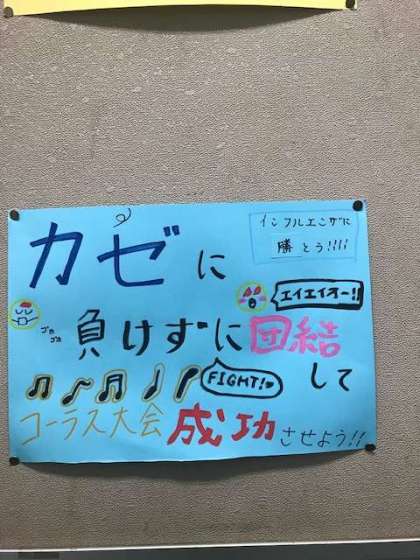 インフルエンザに
勝とう!!!!
カゼに
エイエイオー!!
ゴホ
ゴホ
負けずに団結
して
FIGHT!
コーラス大会成功させよう!!